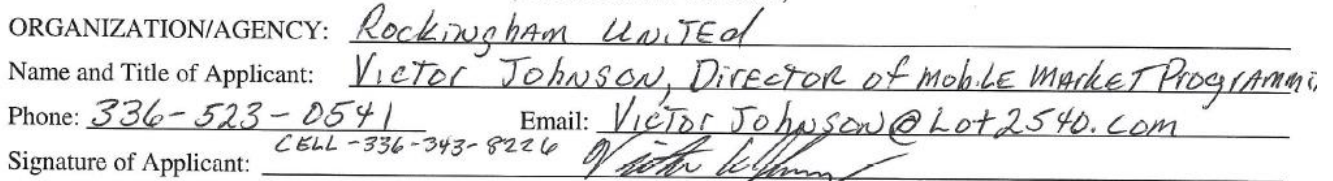 ORGANIZATION/AGENCY: Rockingham UNiTEd
Name and Title of Applicant: VICTOR JOhNSON, DIRECTOR of MObiLE MARKET
Phone: 336-523-0541 Email: VICTOR JOhNSON@Lot2540.com
CELL-336-343-8226
Signature of Applicant: